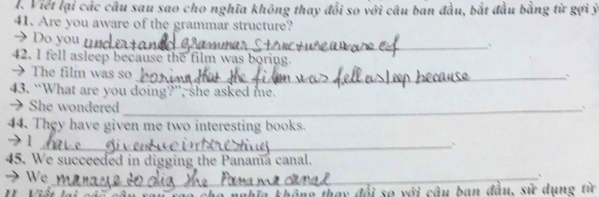 I. Viết lại các câu sau sao cho nghĩa không thay đổi so với câu ban đầu, bắt đầu bằng từ gợi ý
41. Are you aware of the grammar structure?
→ Do you undeztandd grammar structure aware of.
42. I fell asleep because the film was boring.
→ The film was so boring that the film was fell asleep because.
43. “What are you doing?”, she asked me.
→ She wondered.
44. They have given me two interesting books.
→ I have given two interesting.
45. We succeeded in digging the Panama canal.
→ We manage to dig the Panama canal.
II. Viết lại các câu sau sao cho nghĩa không thay đổi so với câu ban đầu, sử dụng từ